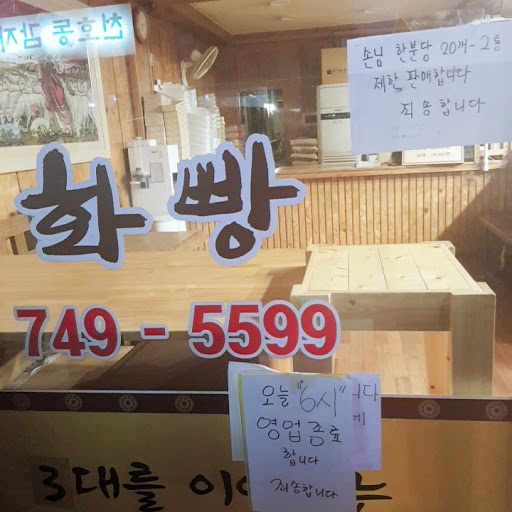 천호동 감자
손님 한분당 20개-2통
제한 판매합니다
죄송합니다
화빵
749-5599
오늘 "6시"
영업종료
합니다
죄송합니다
3대를